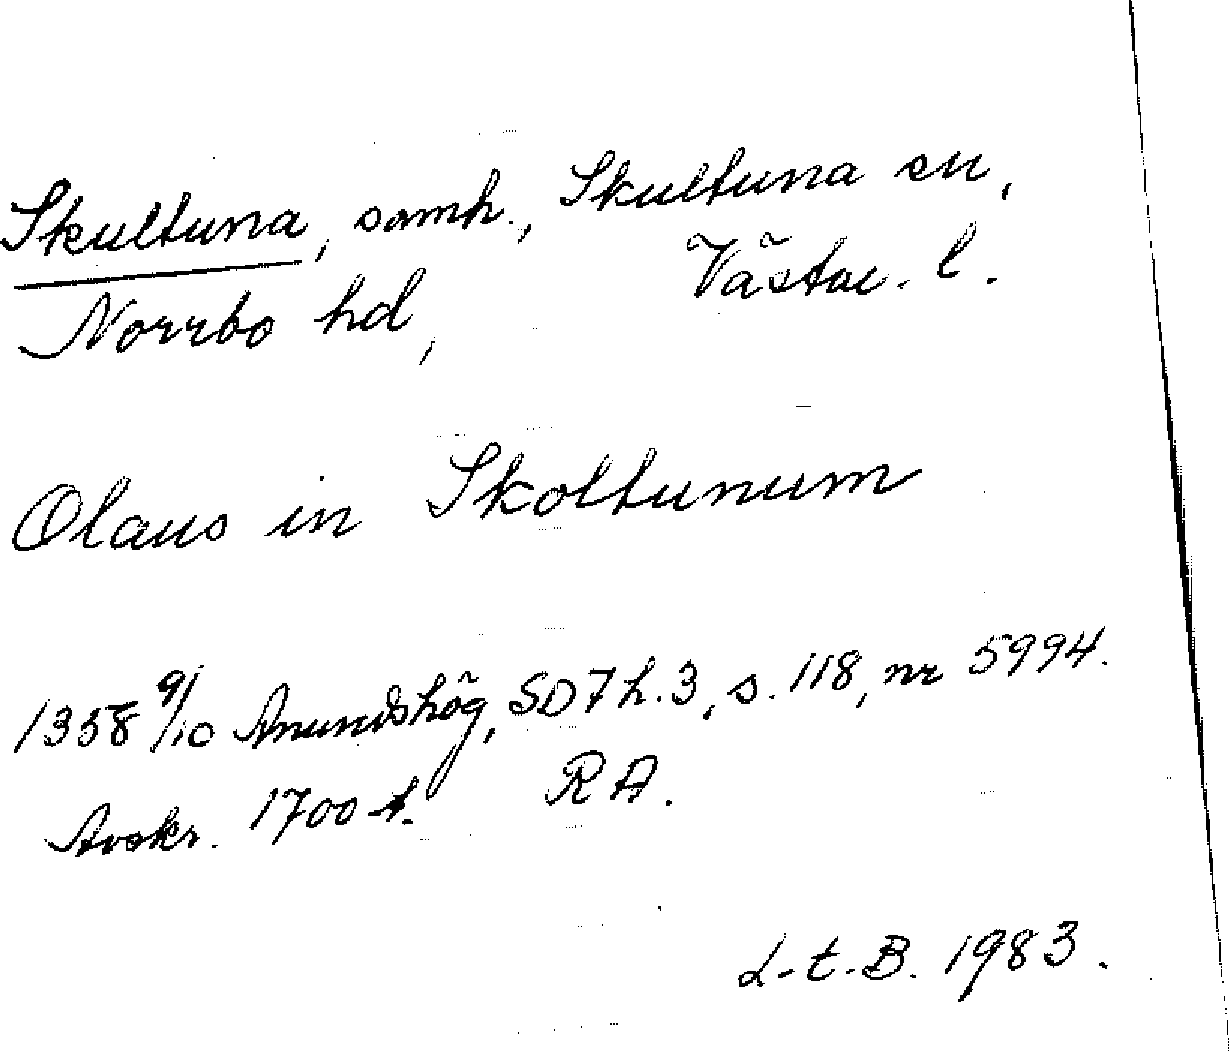 Skultuna, samh., Skultuna sn,
Norrbo hd, Västm. l.
Olaus in Skoltunum
1358 9/10 Anundshög, SD7 h.3, s. 118, nr 5994.
Avskr. 1700 t. RA.
L-t. B. 1983.